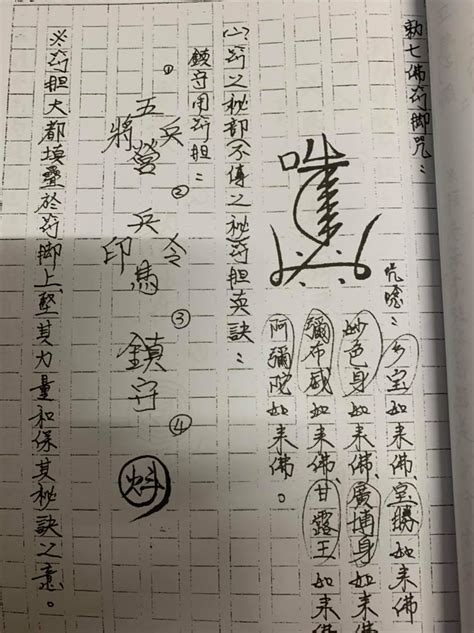 勅七佛符脚咒：
咒唸：多宝如来佛、宝勝如来佛
妙色身如来佛、廣博身如来佛
彌布威如来佛、甘露王如来佛
阿彌陀如来佛。
(一)符之秘部不傳之秘符胆英訣：
鎮守用符胆：
① 五營兵將
② 兵馬令印
③ 鎮守
④ 魁
※符胆大都填疊於符脚上整其力量和保其秘訣之意。